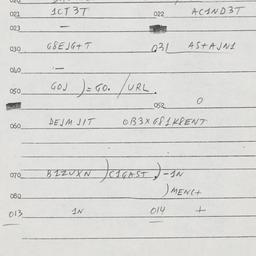 021 1CT3T 022 AC1ND3T
023 —
030 G8EJG+T 031 A5+AJN1
040 —
050 GOJ )=GO. /URL.
052 0
060 DEJMJIT OB3XG81K8ENT
070 B1ZUXN )C1GAST.)-1N
080 )MENC+
013 1N 014 +